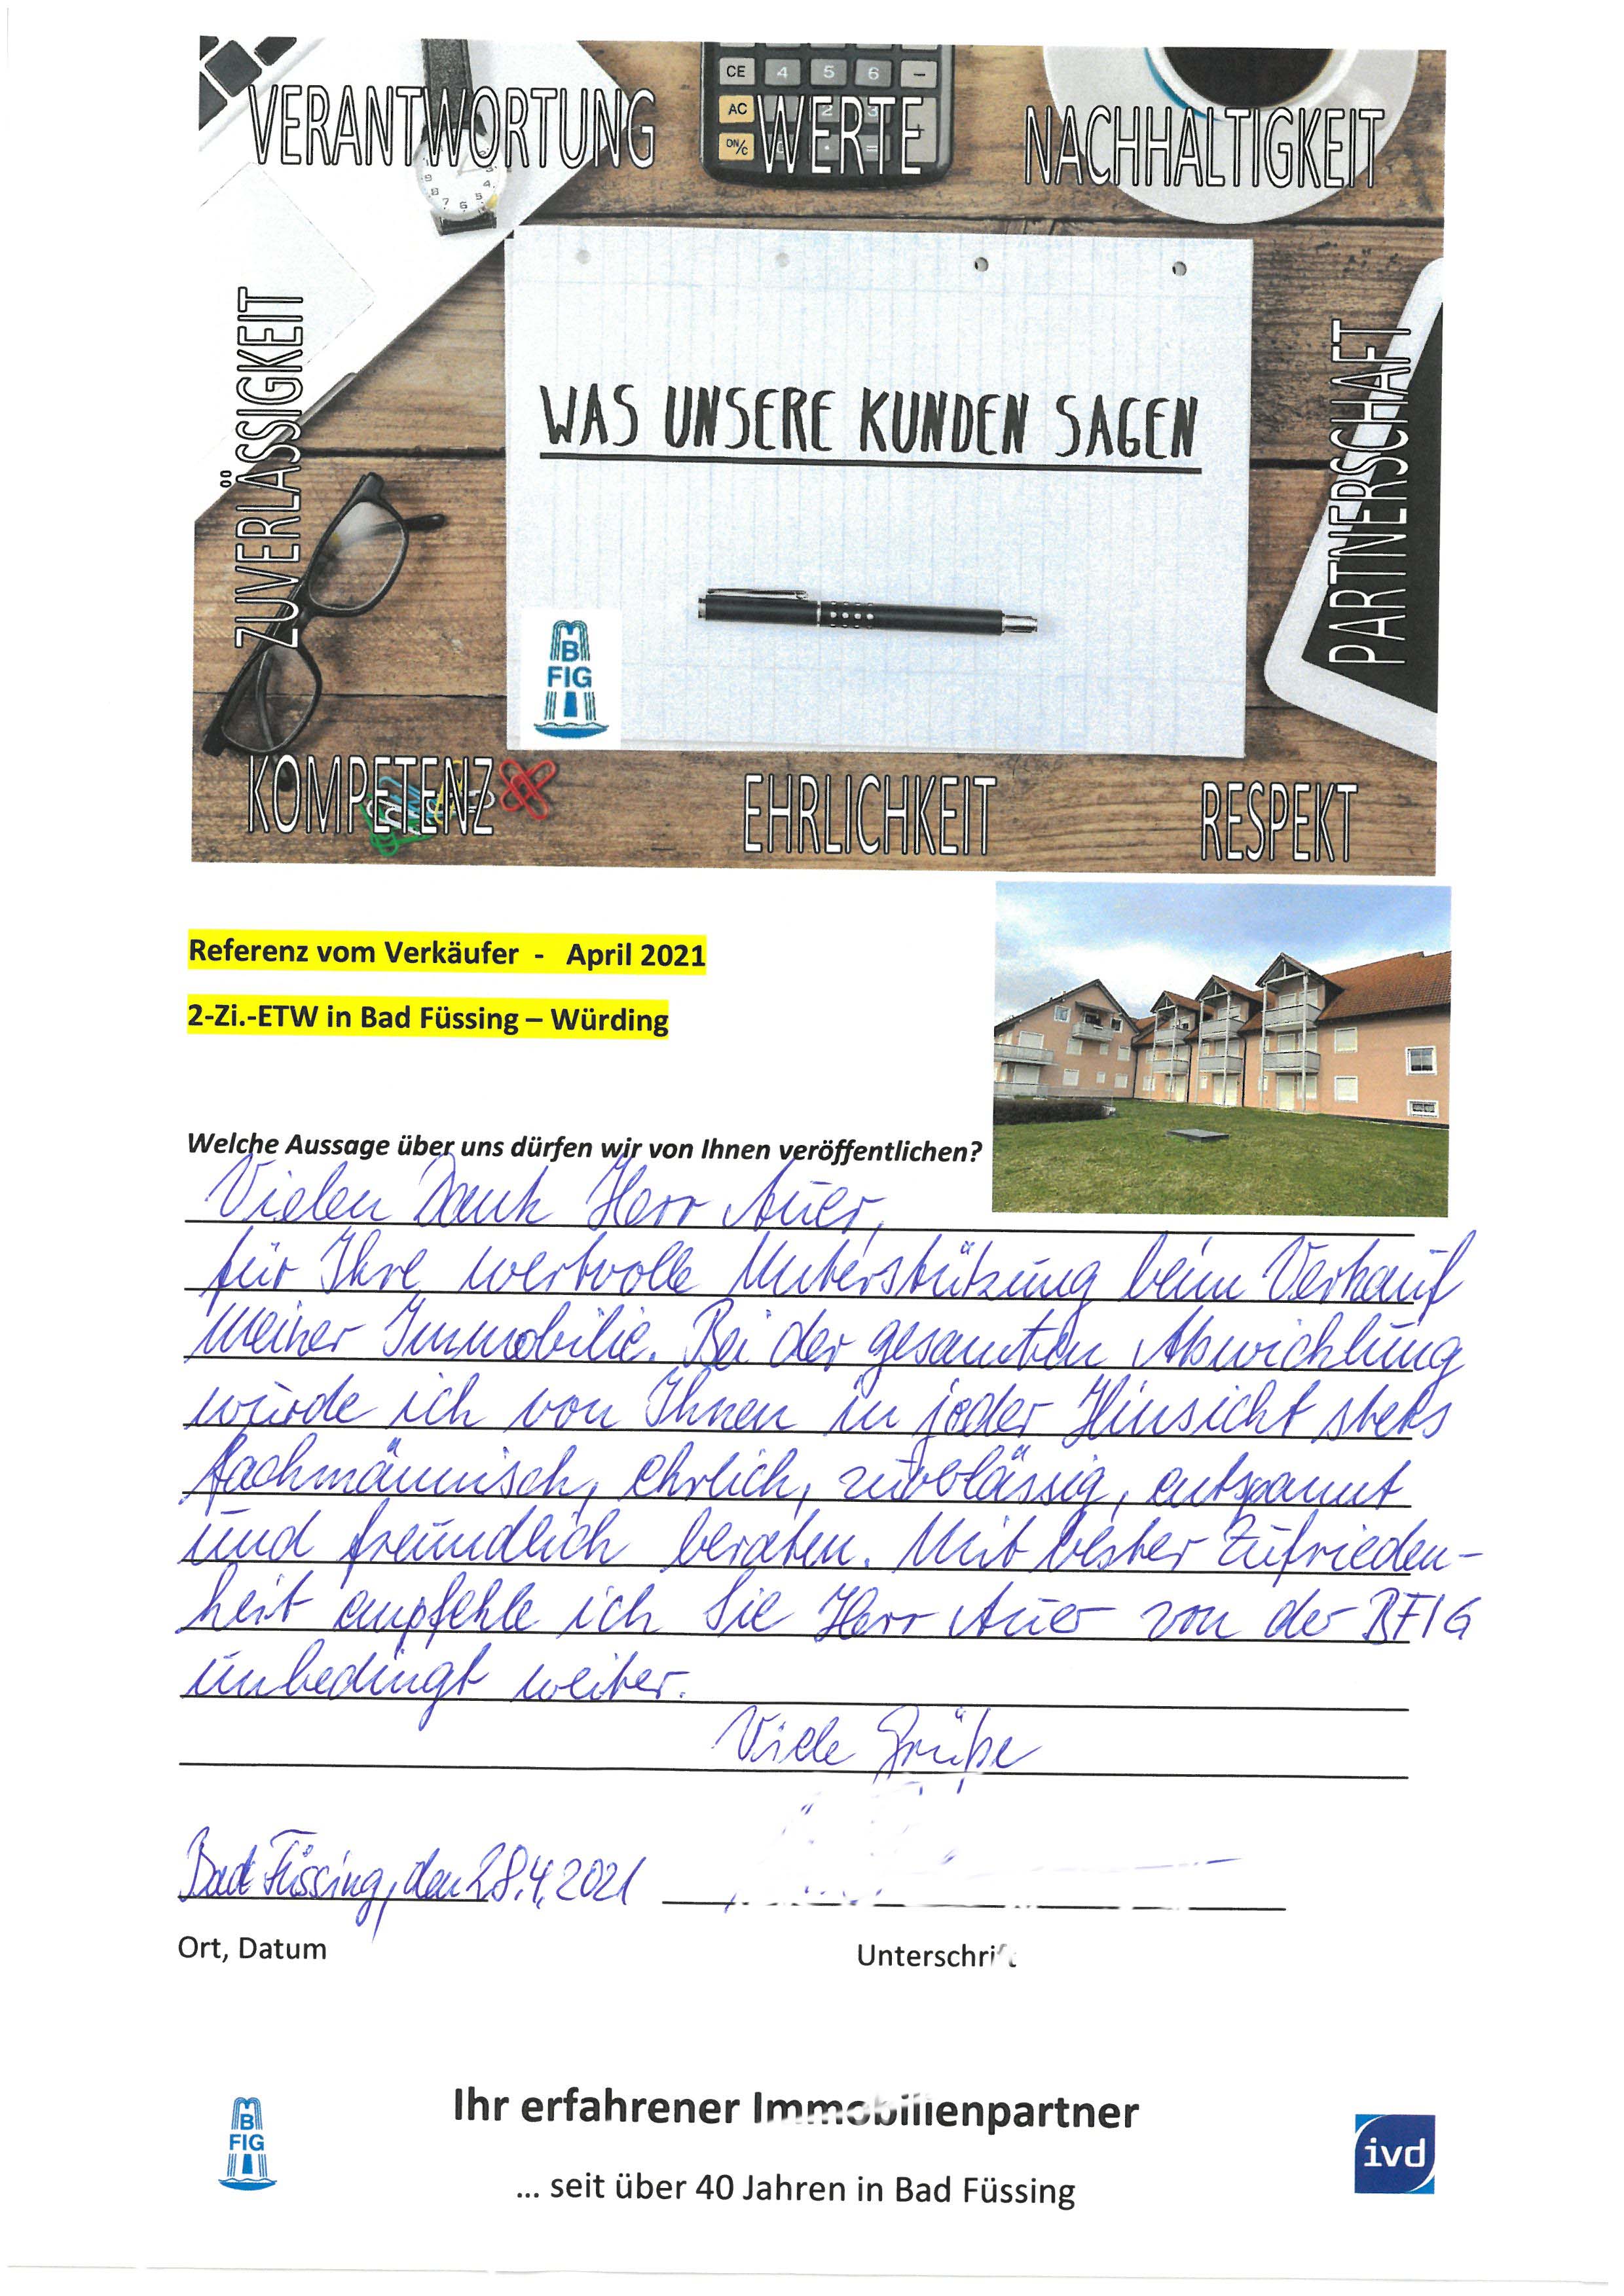 VERANTWORTUNG WERTE NACHHALTIGKEIT
CE 4 5 6 −
AC 2 3
ON/C
ZUVERLÄSSIGKEIT
WAS UNSERE KUNDEN SAGEN
PARTNERSCHAFT
B
FIG
KOMPETENZ EHRLICHKEIT RESPEKT
Referenz vom Verkäufer - April 2021
2-Zi.-ETW in Bad Füssing – Würding
Welche Aussage über uns dürfen wir von Ihnen veröffentlichen?
Vielen Dank Herr Auer,
für Ihre wertvolle Unterstützung beim Verkauf
meiner Immobilie. Bei der gesamten Abwicklung
wurde ich von Ihnen in jeder Hinsicht stets
fachmännisch, ehrlich, zuverlässig, entspannt
und freundlich beraten. Mit bester Zufrieden-
heit empfehle ich Sie Herr Auer von der BFIG
unbedingt weiter.
Viele Grüße
Bad Füssing, den 28.4.2021
Ort, Datum Unterschrift
Ihr erfahrener Immobilienpartner
... seit über 40 Jahren in Bad Füssing
B
FIG
ivd